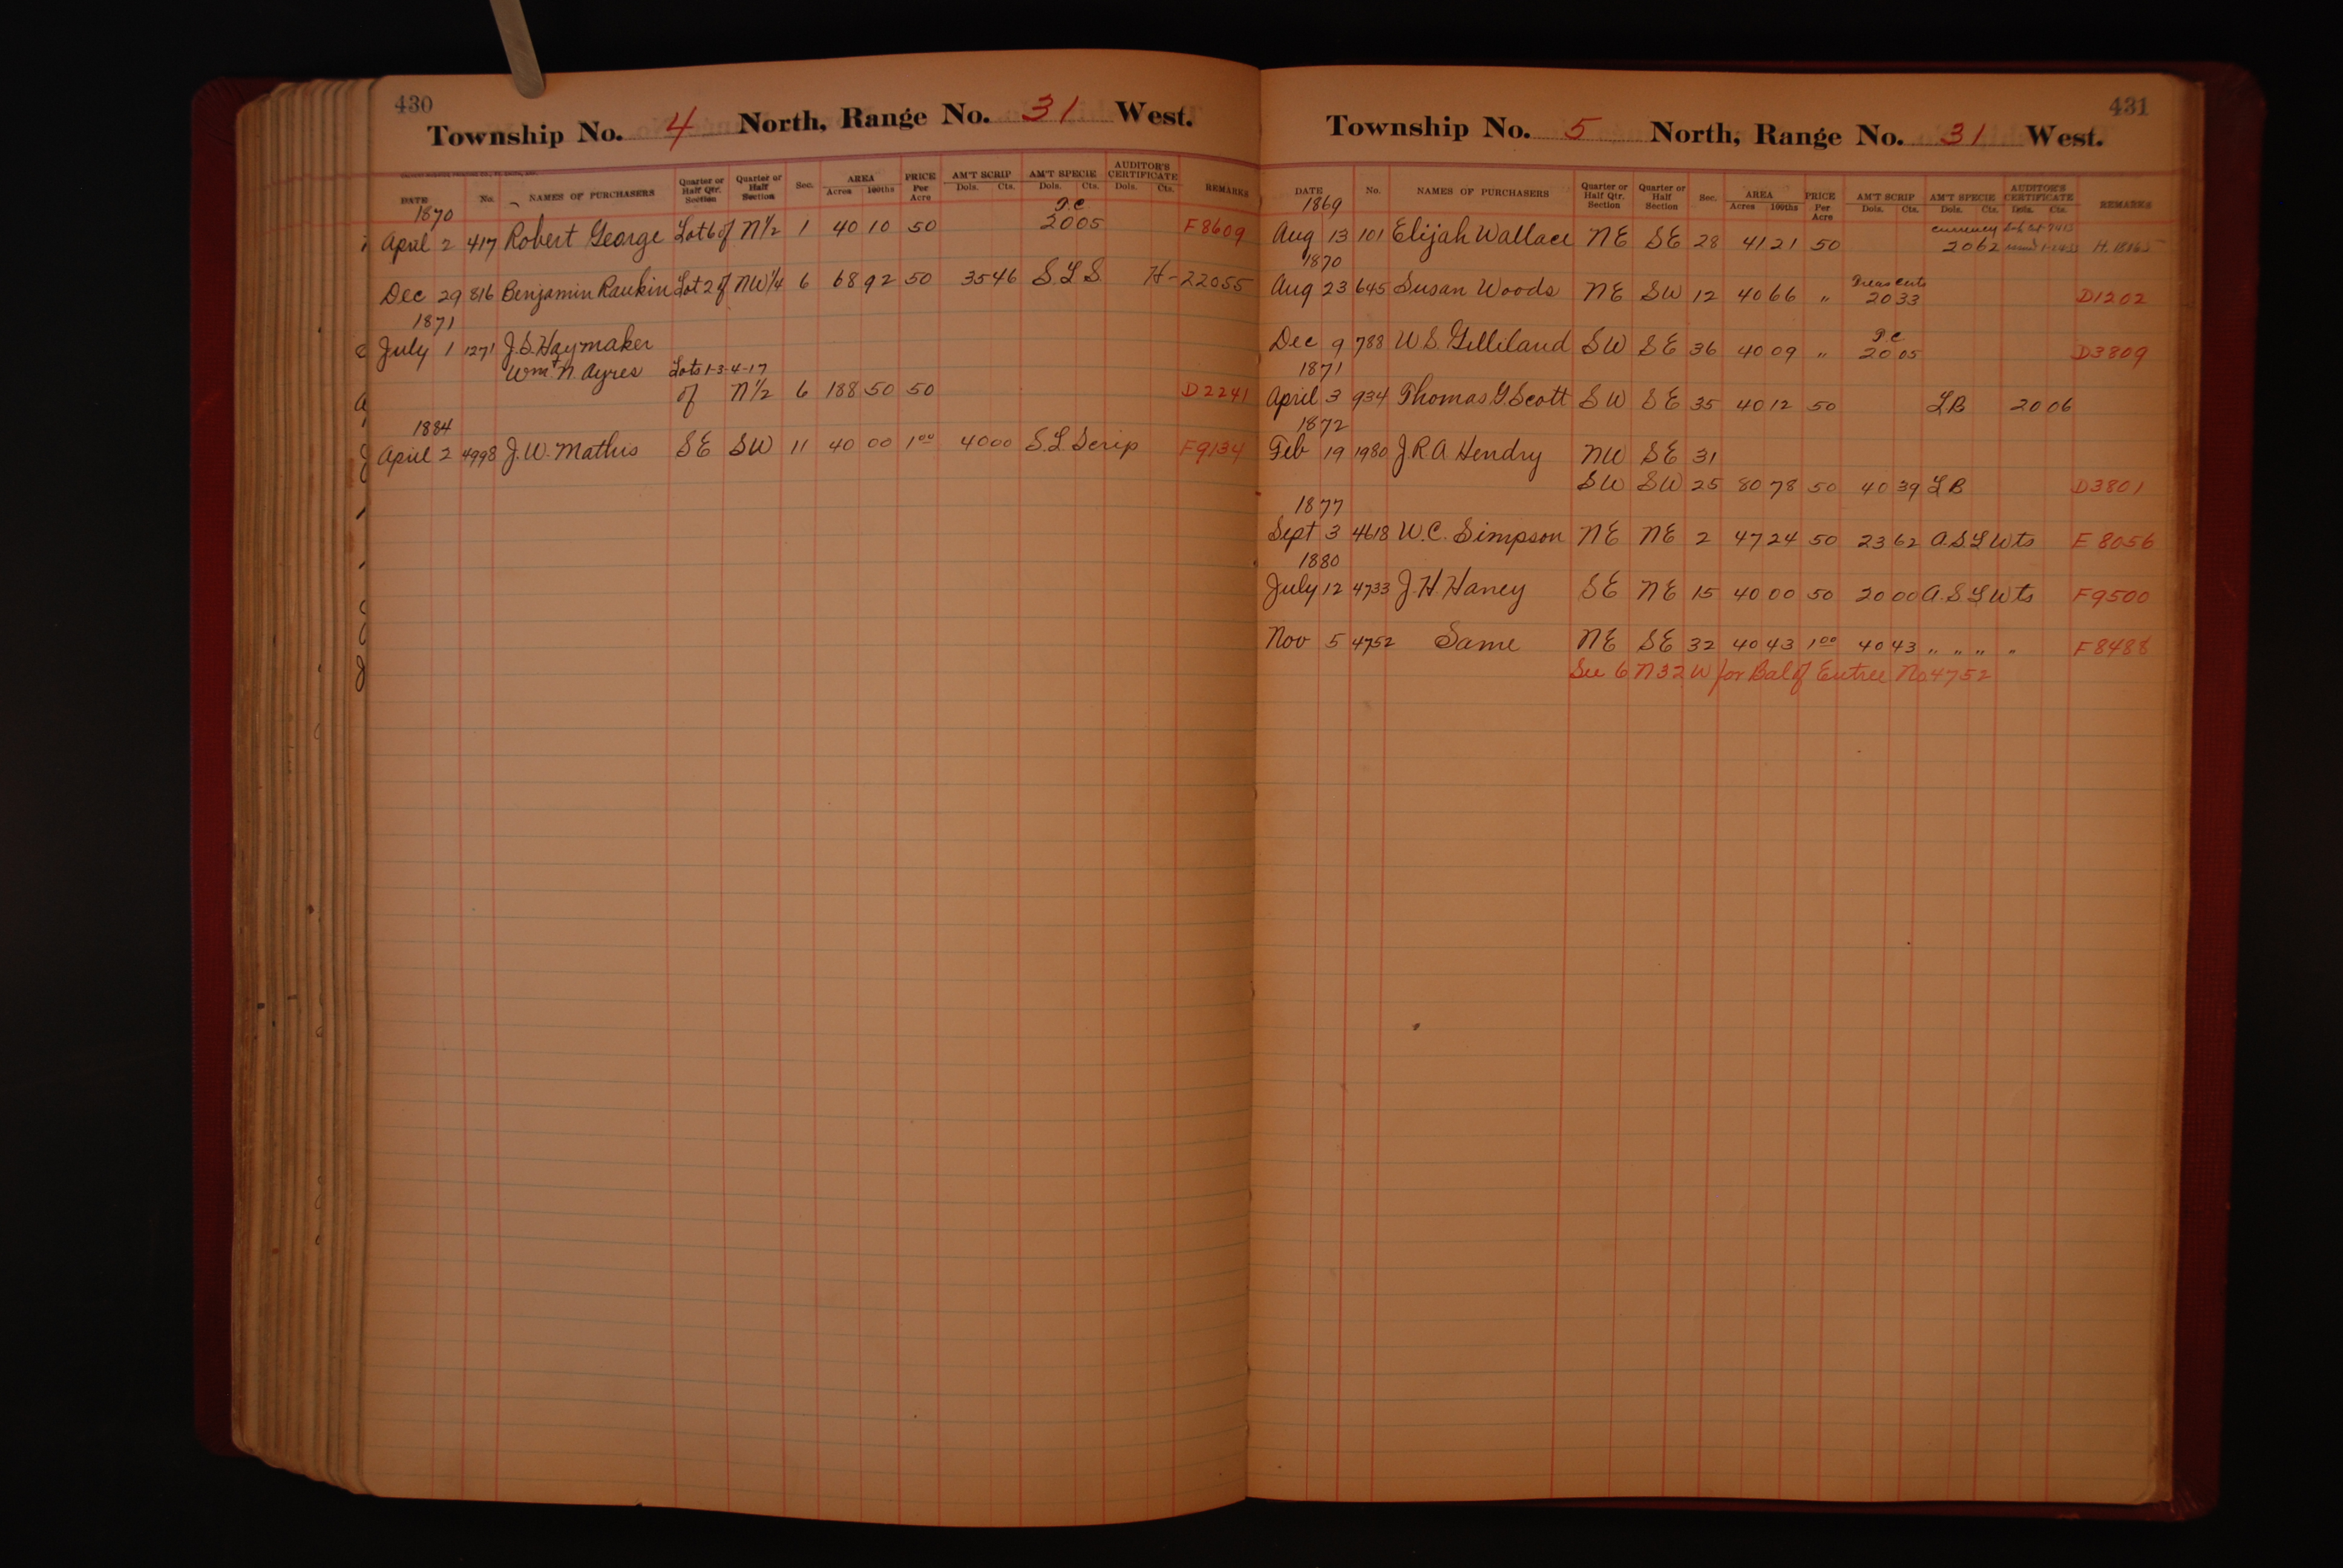 430
Township No. 4 North, Range No. 31 West.
DATE No. NAMES OF PURCHASERS Quarter or Half Qtr. Section Quarter or Half Section Sec. AREA Acres 100ths PRICE Per Acre AM'T SCRIP Dols. Cts. AM'T SPECIE Dols. Cts. AUDITOR'S CERTIFICATE Dols. Cts. REMARKS
1870 T.C
April 2 417 Robert George Lot 6 of N½ 1 40 10 50 20 05 F8609
Dec 29 816 Benjamin Rankin Lot 2 of NW¼ 6 68 92 50 35 46 S L S H-22055
1871
July 1 1271 J.S. Haymaker
Wm. N. Ayres Lots 1-3-4-17
of N½ 6 188 50 50 D2241
1884
April 2 4998 J.W. Mathis SE SW 11 40 00 1 00 40 00 S.L. Scrip F9134
431
Township No. 5 North, Range No. 31 West.
DATE No. NAMES OF PURCHASERS Quarter or Half Qtr. Section Quarter or Half Section Sec. AREA Acres 100ths PRICE Per Acre AM'T SCRIP Dols. Cts. AM'T SPECIE Dols. Cts. AUDITOR'S CERTIFICATE Dols. Cts. REMARKS
1869 currency
Aug 13 101 Elijah Wallace NE SE 28 41 21 50 20 62
1870
Aug 23 645 Susan Woods NE SW 12 40 66 " 20 33 D1202
T.C
Dec 9 788 W.S. Gilleland SW SE 36 40 09 " 20 05 D3809
1871
April 3 934 Thomas G Scott SW SE 35 40 12 50 LB 20 06
1872
Feb 19 1980 J.R.A. Hendry NW SE 31
SW SW 25 80 78 50 40 39 LB D3801
1877
Sept 3 4618 W.C. Simpson NE NE 2 47 24 50 23 62 A.S.L Wts E8056
1880
July 12 4733 J.H. Haney SE NE 15 40 00 50 20 00 A.S L Wts F9500
Nov 5 4752 Same NE SE 32 40 43 1 00 40 43 " " " " F8488
See 6 N 32 W for Bal of Entree No 4752